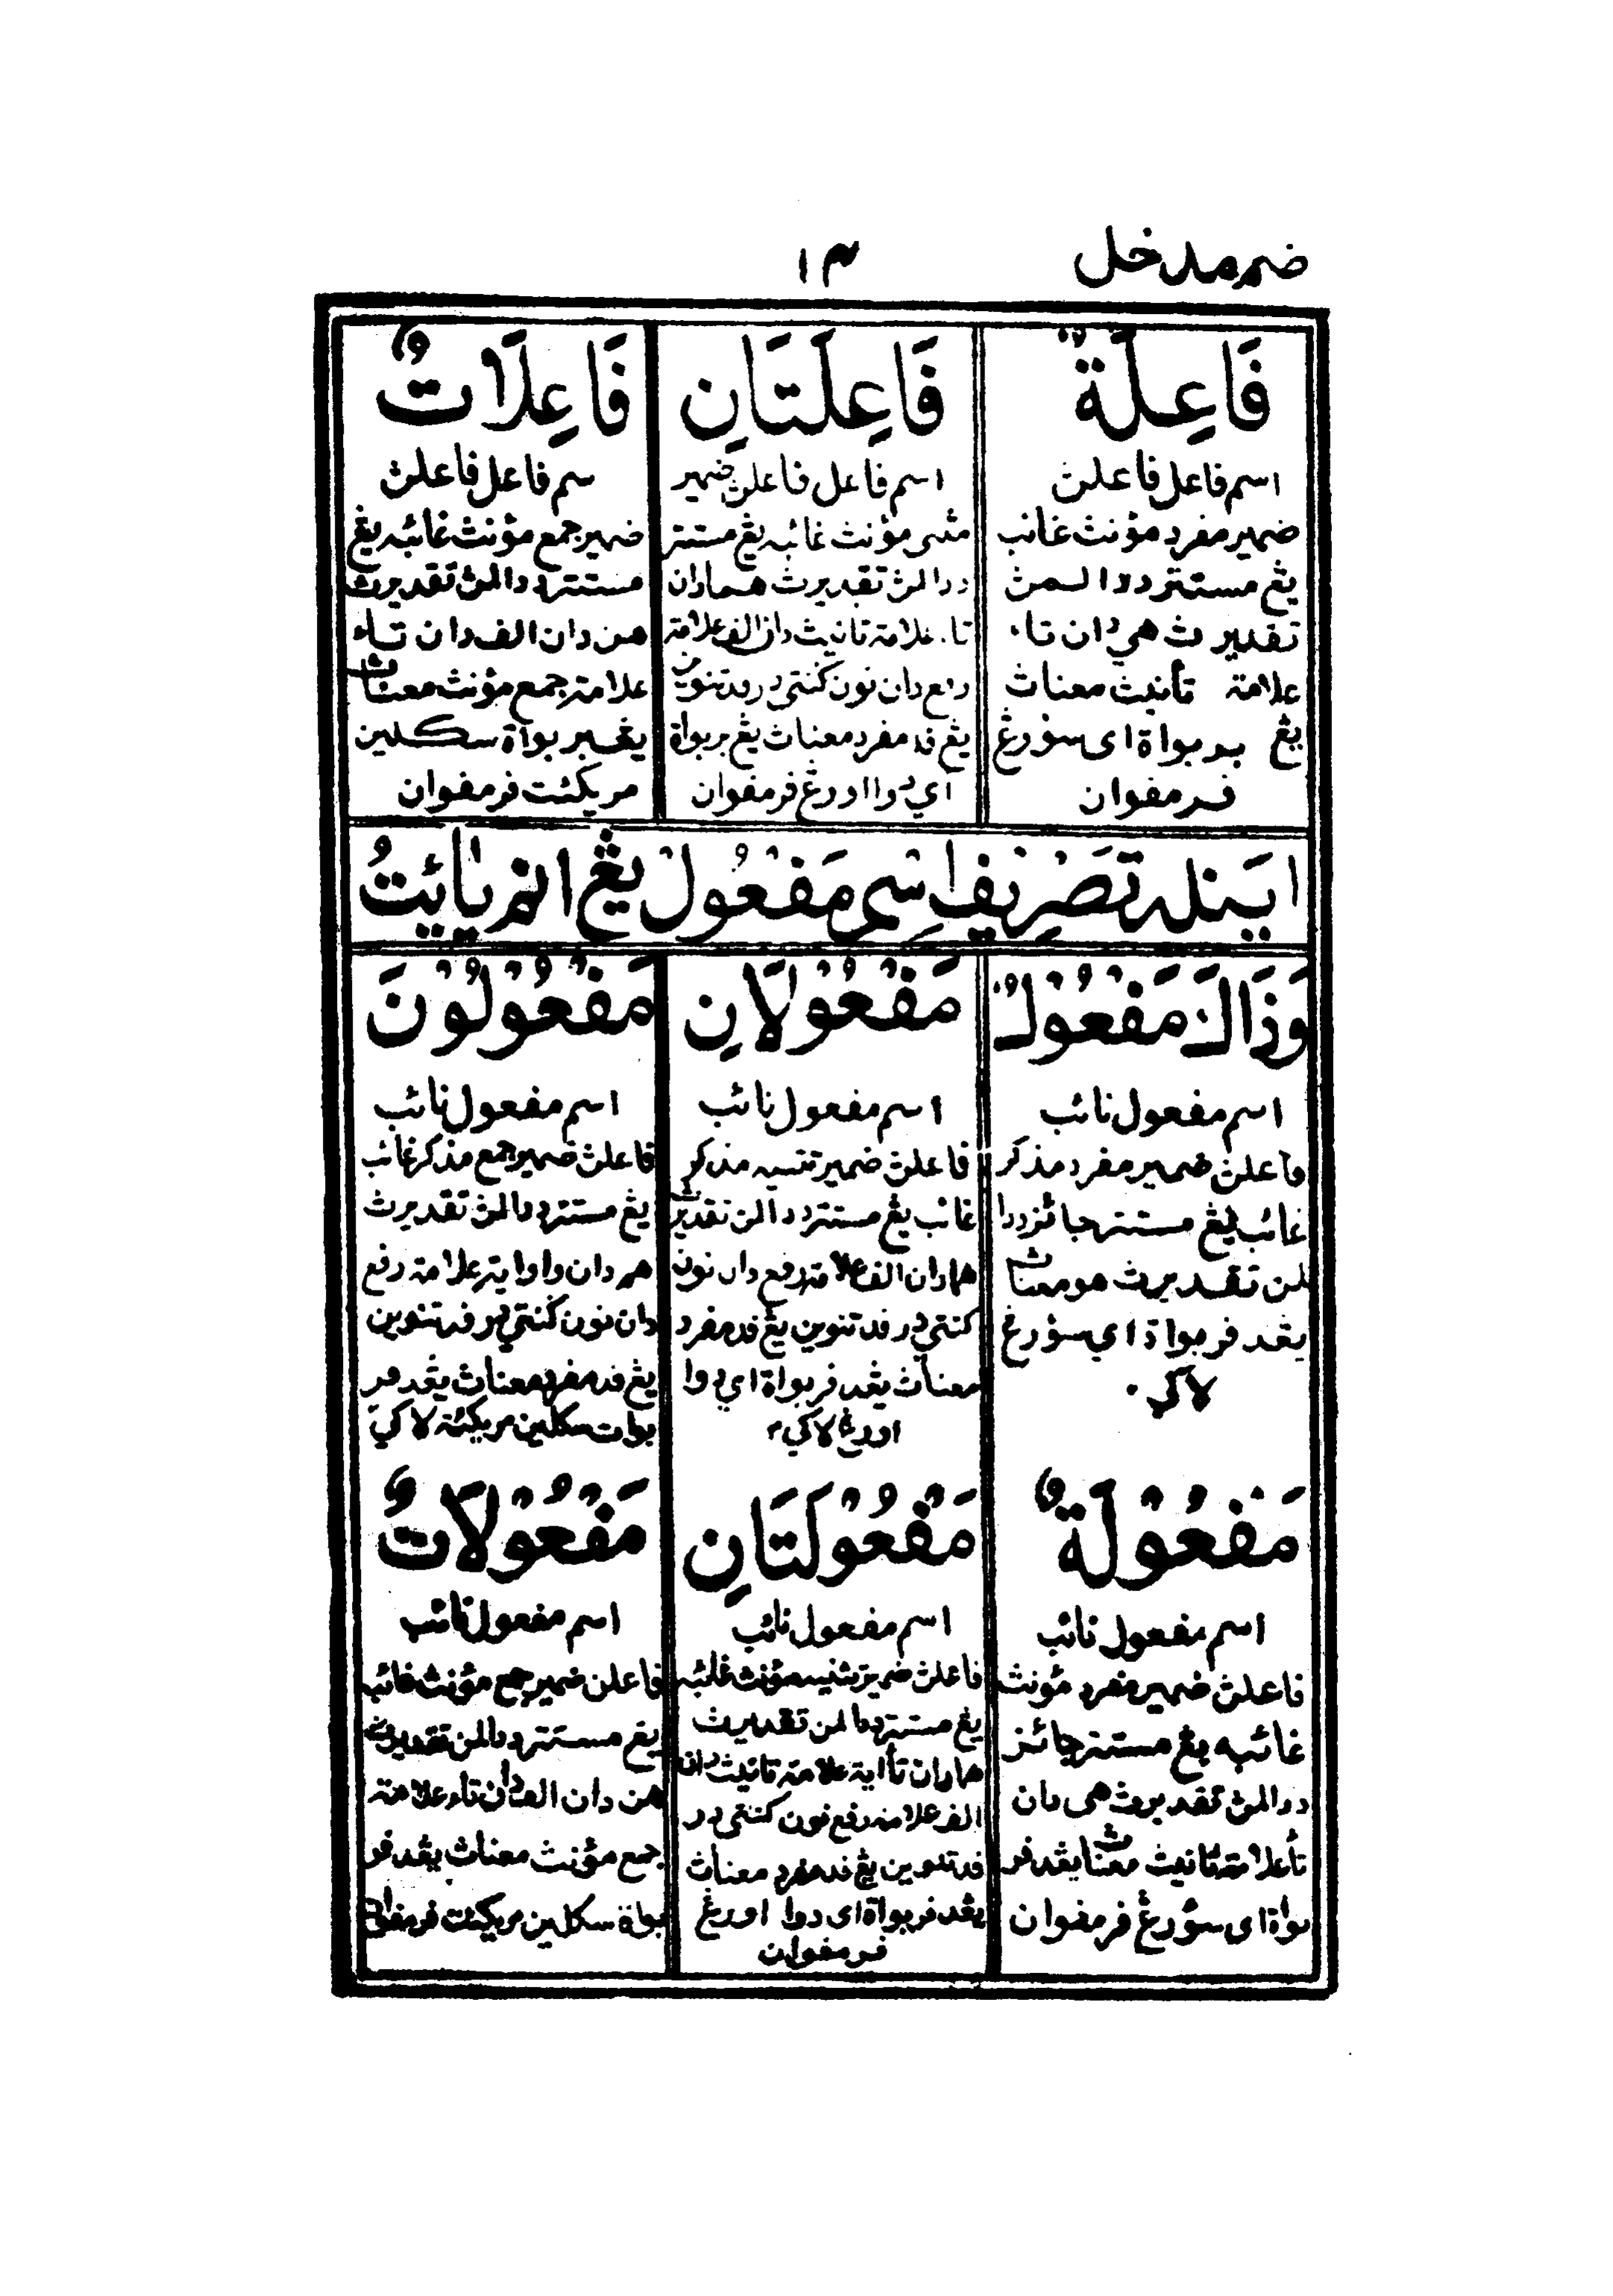 ضمير مدخل
١٣
فَاعِلَةٌ
اسم فاعل فاعلڽ
ضمير مفرد مؤنث غائب
يڠ مستتر ددالمڽ
تقديرڽ هي دان تاء
علامة تأنيث معناڽ
يڠ بربواة اى سؤرڠ
فرمفوان
فَاعِلَتَانِ
اسم فاعل فاعلڽ ضمير
مثنى مؤنث غائبه يڠ مستتر
ددالمڽ تقديرڽ هما دان
تاء علامة تانيث دان الف علامة
رفع دان نون ݢنتي در فد تنوين
يڠ فد مفرد معناڽ يڠ بربواة
اي دوا اورڠ فرمفوان
فَاعِلَاتٌ
سم فاعل فاعلڽ
ضمير جمع مؤنث غائبه يڠ
مستتر ددالمڽ تقديرڽ
هن دان الف دان تاء
علامة جمع مؤنث معناڽ
يڠ بربواة سكلين
مريكئت فرمفوان
اينله تَصْرِيف اسِم مَفْعُول يڠ انم بائيتُ
وَذَاكَ مَفْعُوْلٌ
اسم مفعول نائب
فاعلڽ ضمير مفرد مذكر
غائب يڠ مستتر جائز ددا
لمڽ تقديرڽ هو معناڽ
يڠد فربواة اي سؤرڠ
لاكي
مَفْعُوْلَانِ
اسم مفعول نائب
فاعلڽ ضمير تثنيه مذكر
غائب يڠ مستتر ددالمڽ تقديرڽ
هما دان الف علامة رفع دان نون
كنتي در فد تنوين يڠ فد مفرد
معناڽ يڠد فربواة اي دوا
اورڠ لاكي٢
مَفْعُوْلُوْنَ
اسم مفعول نائب
فاعلڽ ضمير جمع مذكر غائب
يڠ مستتر ددالمڽ تقديرڽ
هم دان واو ايت علامة رفع
دان نون كنتي در فد تنوين
يڠ فد مفرد معناڽ يڠد فر
بوات سكلين مريكئة لاكي٢
مَفْعُوْلَةٌ
اسم مفعول نائب
فاعلڽ ضمير مفرد مؤنث
غائبه يڠ مستتر جائز
ددالمڽ تقديرڽ هي دان
تأ علامة تانيث معناڽ يڠد فر
بواة اى سؤرڠ فرمفوان
مَفْعُوْلَتَانِ
اسم مفعول نائب
فاعلڽ ضمير تثنيه مؤنث غائبه
يڠ مستتر ددالمڽ تقديرڽ
هما دان تأ اية علامة تانيث دان
الف علامة رفع نون كنتي در
فد تنوين يڠ فد مفرد معناڽ
يڠد فربواة اى دوا اورڠ
فرمفوان
مَفْعُوْلَاتٌ
اسم مفعول نائب
فاعلن ضمير جمع مؤنث غائبه
يڠ مستتر ددالمن تقديرڽ
هن دان الف دان تاء علامة
جمع مؤنث معناڽ يڠد فر
بواة سكلين مريكئت فرمفوان